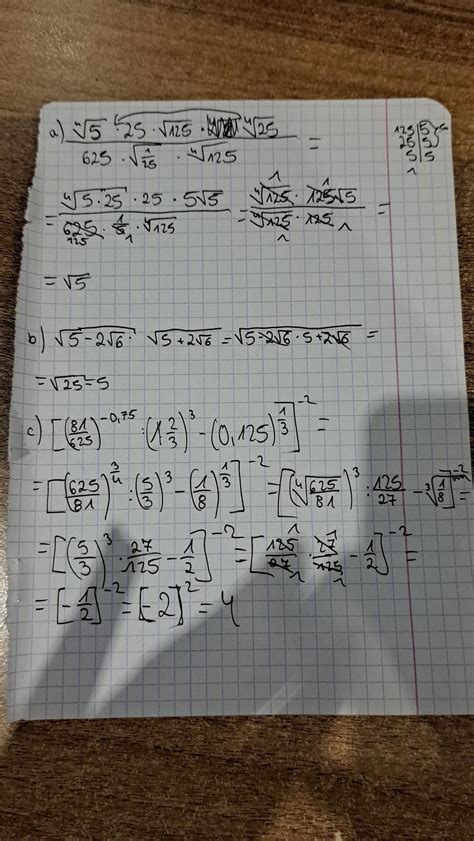 a) ∜5 · 25 · √125 · ∜25 / 625 · √(1/25) · ∜125 =
125 | 5
25 | 5
5 | 5
1
= ∜(5·25) · 25 · 5√5 / 625 · 1/5 · ∜125 = ∜125 · 125√5 / ∜125 · 125 =
= √5
b) √(5 - 2√6) · √(5 + 2√6) = √(5 - 2√6 · 5 + 2√6) =
= √25 = 5
c) [(81/625)^-0,75 : (1 2/3)^3 - (0,125)^1/3]^-2 =
= [(625/81)^3/4 : (5/3)^3 - (1/8)^1/3]^-2 = [(∜(625/81))^3 : 125/27 - ∛(1/8)]^-2 =
= [(5/3)^3 · 27/125 - 1/2]^-2 = [125/27 · 27/125 - 1/2]^-2 =
= [-1/2]^-2 = [-2]^2 = 4